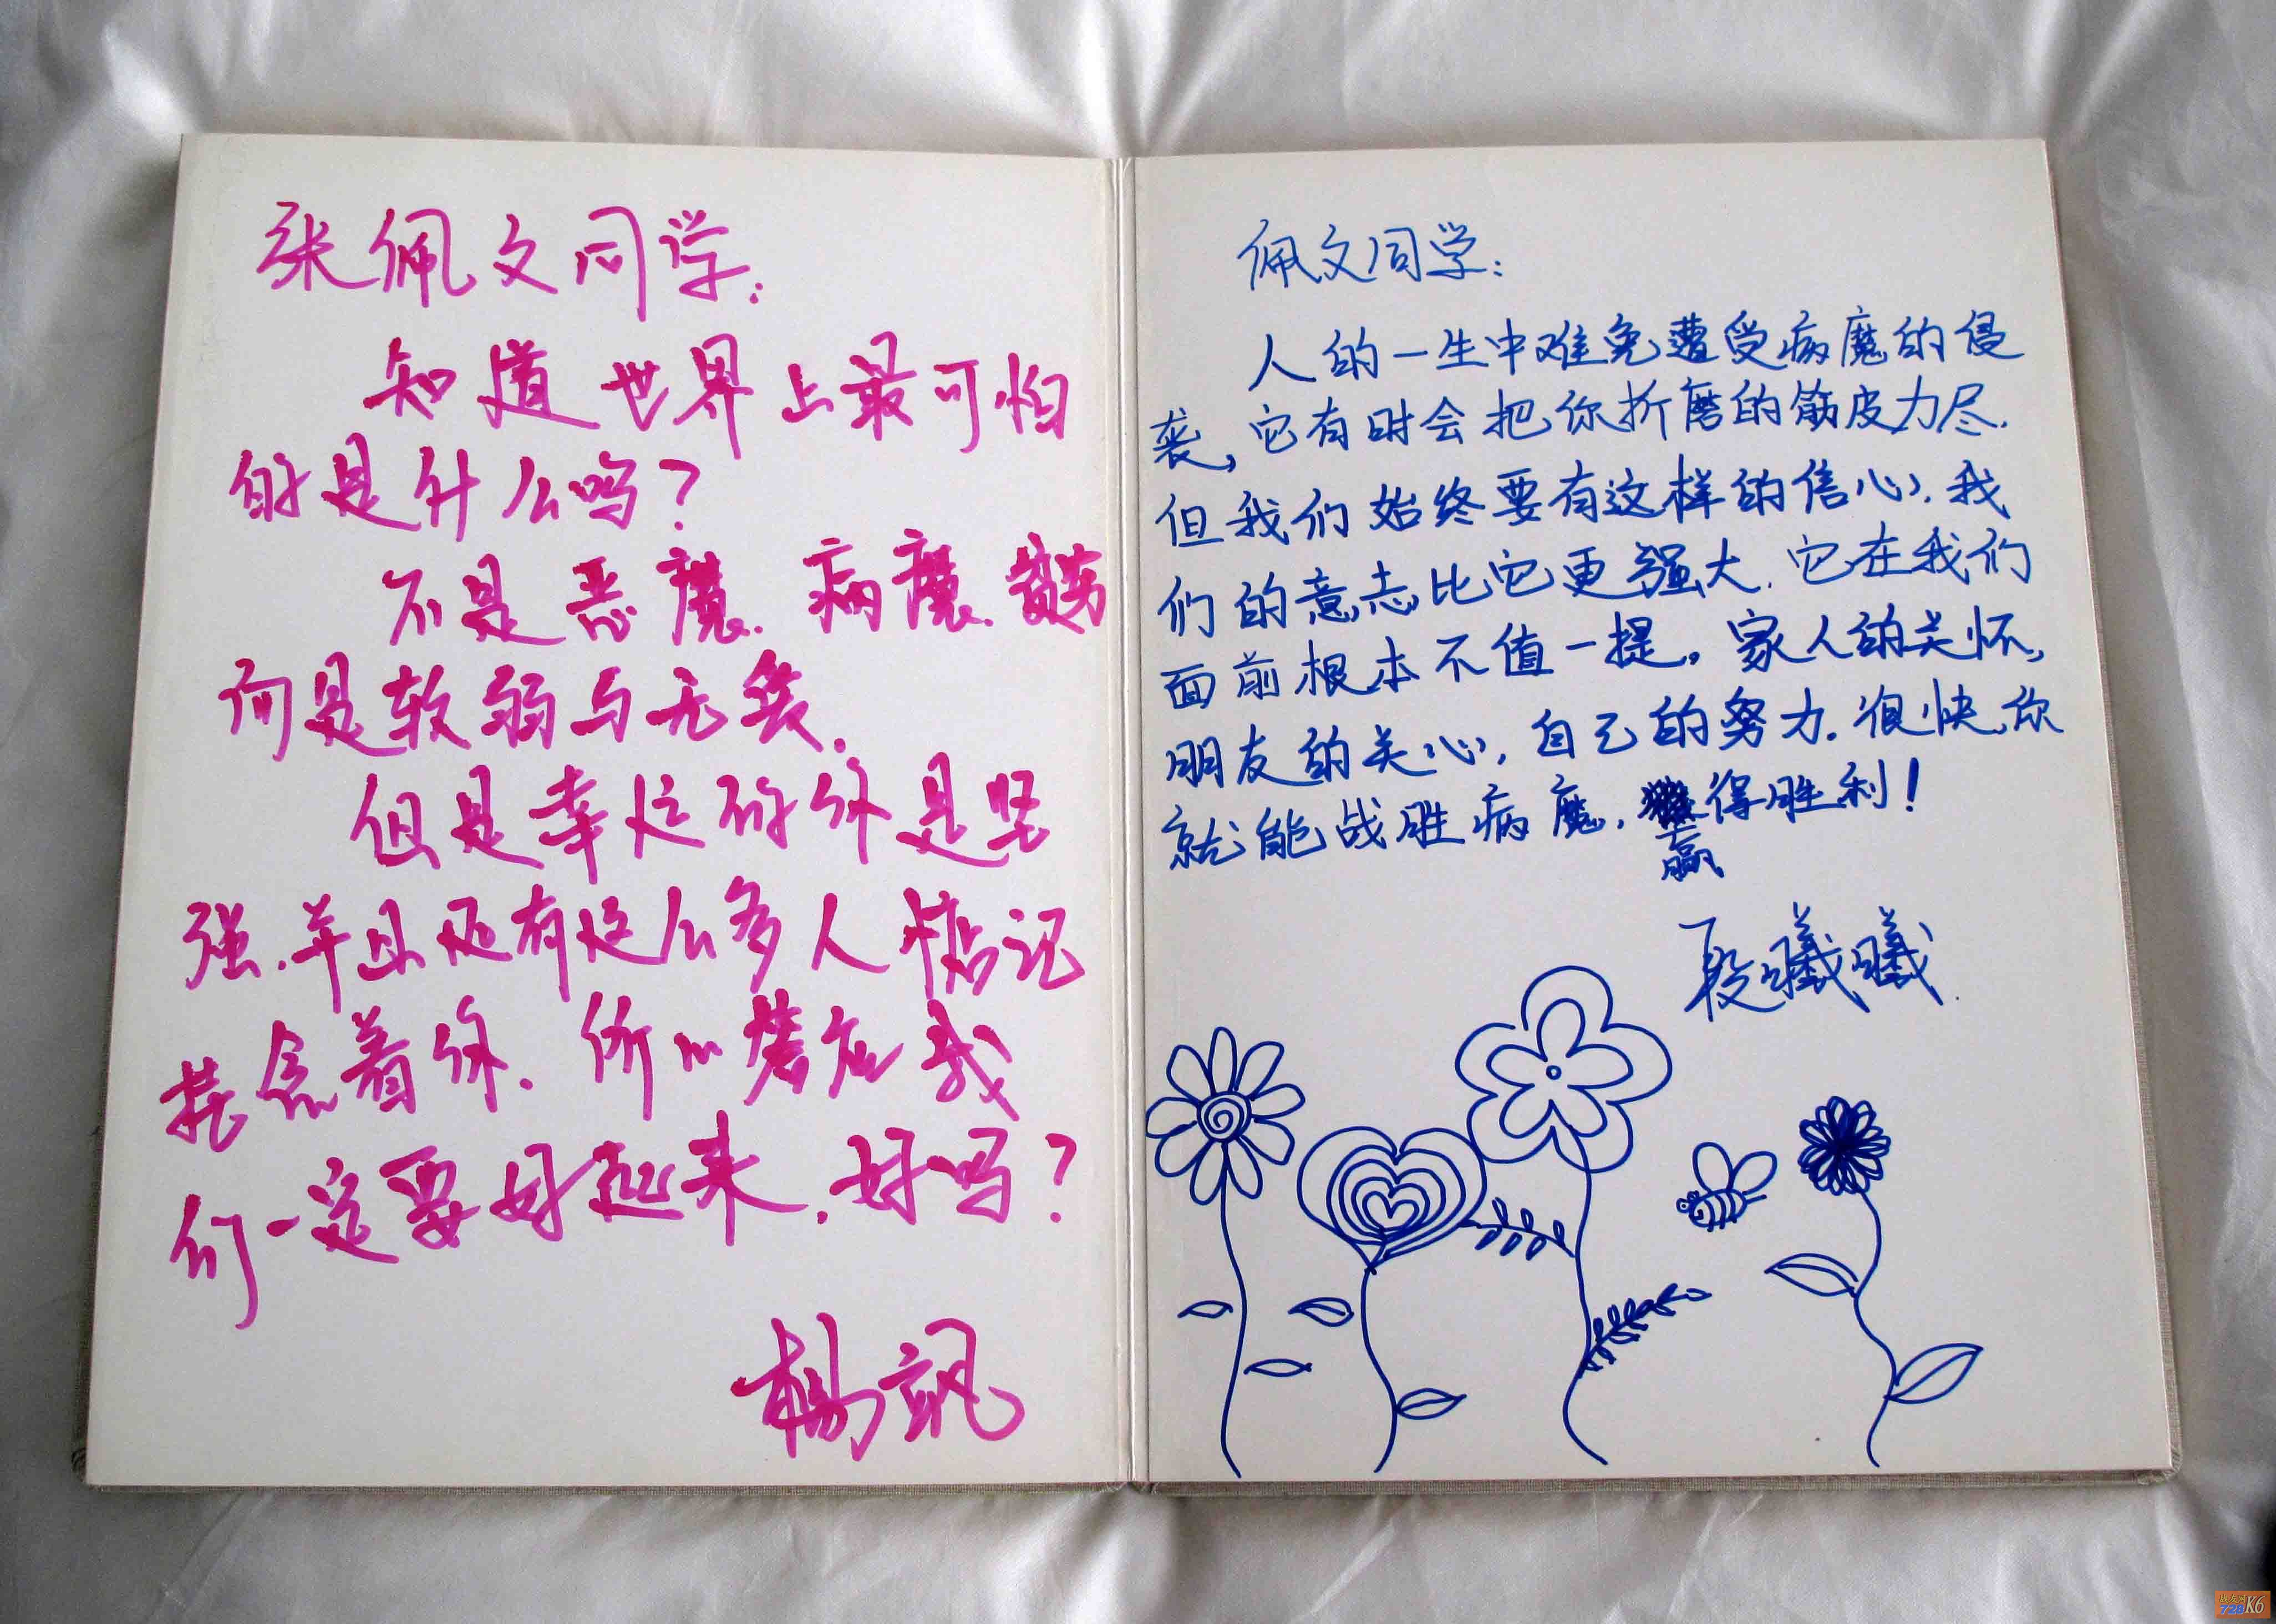 张佩文同学:
知道世界上最可怕
的是什么吗?
不是恶魔.病魔.
而是软弱与无奈.
但是幸运的你是坚
强.并且还有这么多人惦记
挂念着你.所以答应我
们一定要好起来,好吗?
杨飒
佩文同学:
人的一生中难免遭受病魔的侵
袭,它有时会把你折磨的筋皮力尽.
但我们始终要有这样的信心,我
们的意志比它更强大.它在我们
面前根本不值一提。家人的关怀,
朋友的关心,自己的努力.很快,你
就能战胜病魔,赢得胜利!
段曦曦
728 K6